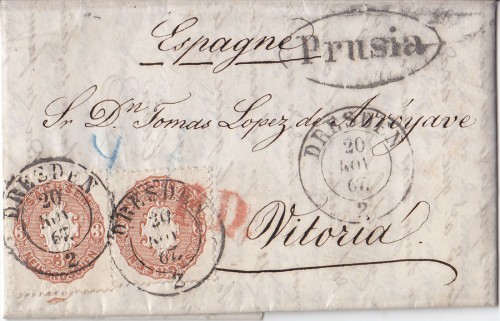 Espagne
Prusia
Sr Dn Tomas Lopez de Arróyave
DRESDEN
20
NOV
67
2
Vitoria
DRESDEN
20
NOV
67
2
3
DRESDEN
20
NOV
67
2